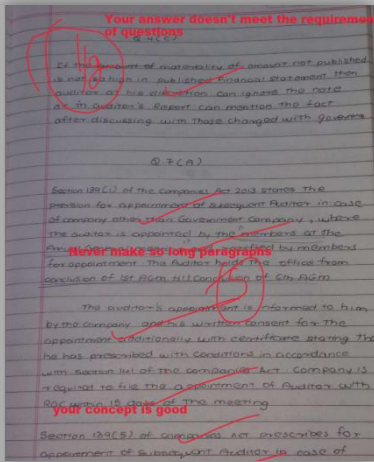 Your answer doesn't meet the requiremen
of questions
If the amount of materiality of amount not published
is not so high in published financial statement then
auditor at his discretion can ignore the note
or in auditor's Report can mention the fact
after discussing with those charged with governa
Q 7 (A)
Section 139(1) of the Companies Act 2013 states the
provision for appointment of subsequent Auditor in case
of company other than Government company, where
the auditor is appointed by the members at the
by members
Never make so long paragraphs
for appointment. The Auditor holds the office from
conclusion of 1st AGM till conclusion of 6th AGM
5
The auditor's appointment is informed to him
by the company and his written consent for the
appointment additionally with certificate stating tha
he has prescribed with conditions in accordance
with section 141 of the companies Act. Company is
required to file the appointment of Auditor with
ROC within 15 days of the meeting
your concept is good
Section 139(5) of companies Act prescribes for
appointment of Subsequent Auditor in case of